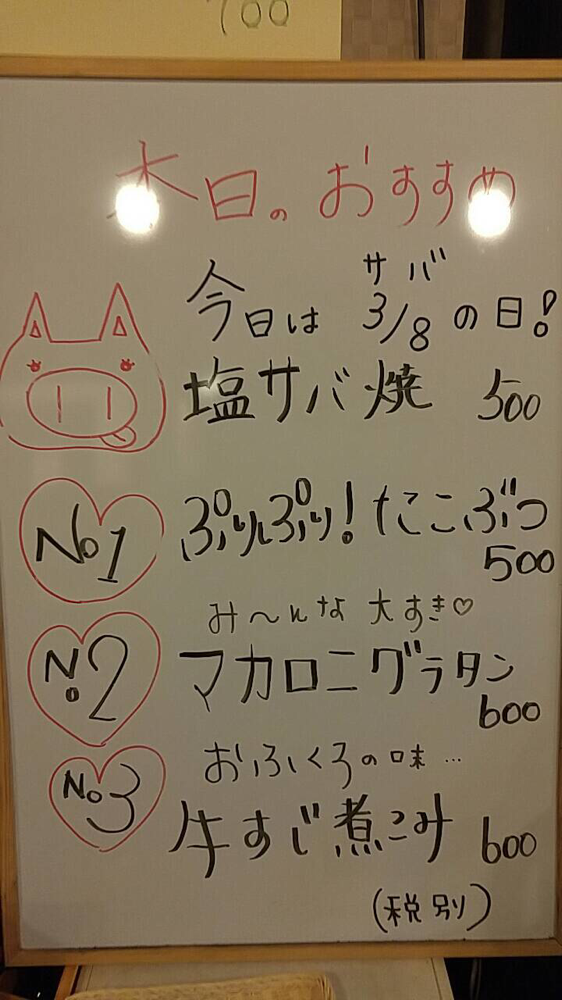 700
本日のおすすめ
サバ
今日は 3/8 の日!
塩サバ焼 500
No1 ぷりぷり!たこぶつ
500
み〜んな 大すき♡
No2 マカロニグラタン
600
おふくろの味…
No3 牛すじ煮こみ 600
(税別)